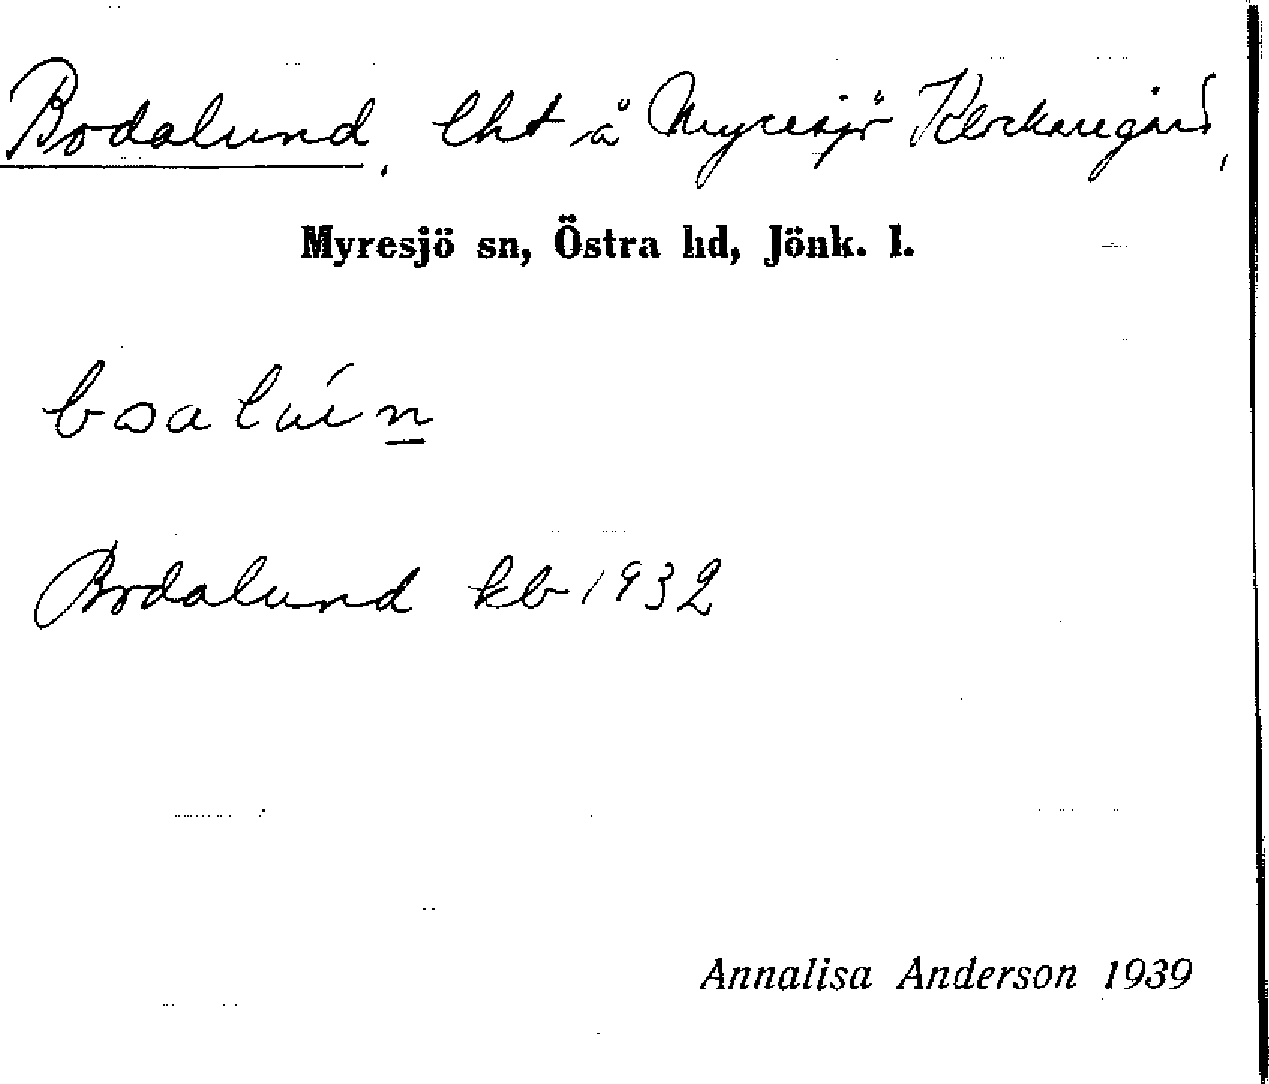 Bodalund, lht å Myresjö Klockaregård,
Myresjö sn, Östra hd, Jönk. l.
Bodalund kb 1932
Annalisa Anderson 1939